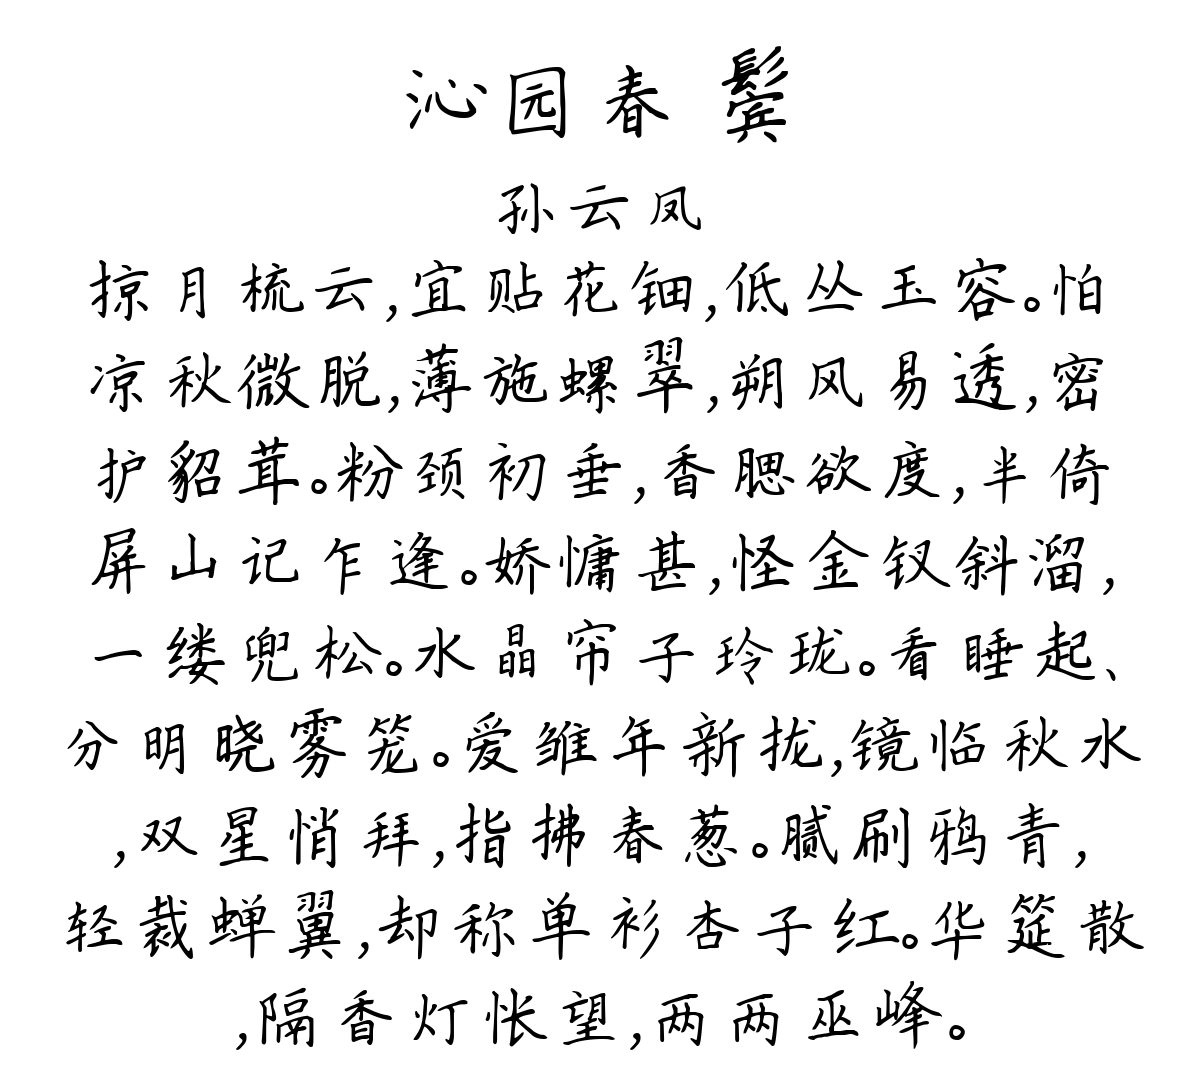 沁园春 鬓
孙云凤
掠月梳云,宜贴花钿,低丛玉容。怕
凉秋微脱,薄施螺翠,朔风易透,密
护貂茸。粉颈初垂,香腮欲度,半倚
屏山记乍逢。娇慵甚,怪金钗斜溜,
一缕兜松。水晶帘子玲珑。看睡起、
分明晓雾笼。爱雏年新拢,镜临秋水
,双星悄拜,指拂春葱。腻刷鸦青,
轻裁蝉翼,却称单衫杏子红。华筵散
,隔香灯怅望,两两巫峰。